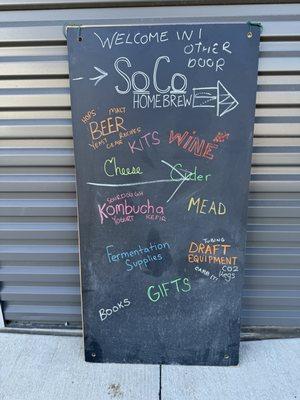 WELCOME IN!
OTHER
DOOR
SoCo
HOMEBREW
HOPS MALT
BEER
YEAST GEAR RECIPES
KITS
WINE
Cheese
Cider
SOURDOUGH
Kombucha
YOGURT KEFIR
MEAD
Fermentation
Supplies
TUBING
DRAFT
EQUIPMENT
CO2
Regs
GIFTS
BOOKS